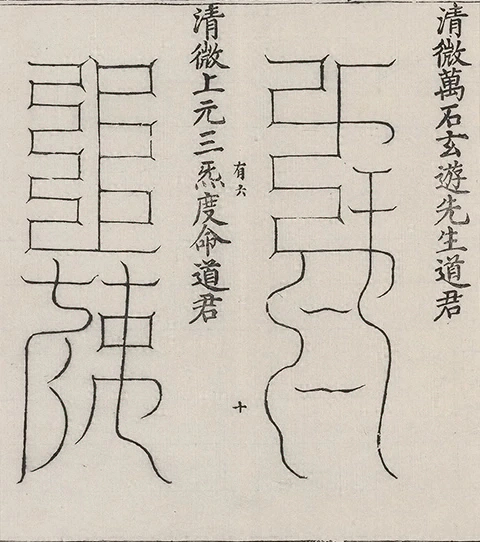 清微萬石玄遊先生道君
十
有六
清微上元三炁度命道君